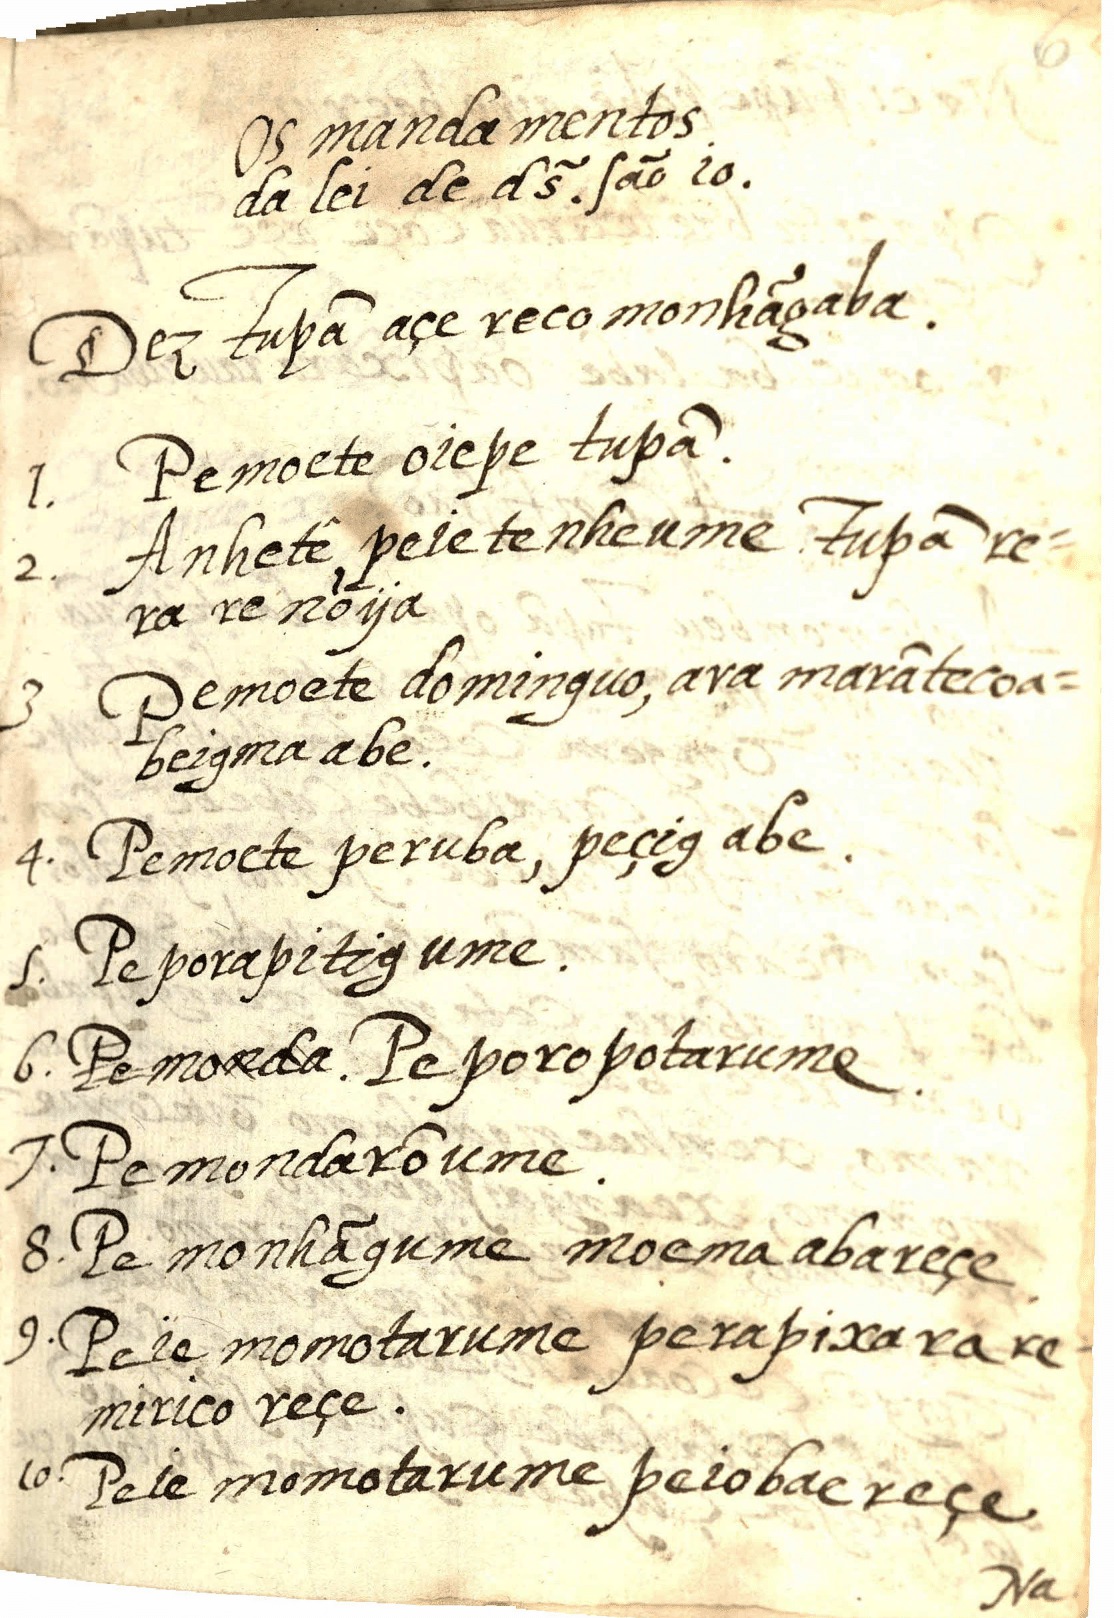 6
Os mandamentos
da lei de ds̃. são 10.
Dez tupã açe recomonhãgaba.
1. Pemoete oiepe tupã.
2. Anhetê peietenheume Tupã re=
ra renõija
3 Pemoete dominguo, ara marãtecoa=
beigma abe.
4. Pemoete peruba, peçig abe.
5. Peporapitig ume.
6. Pemonda. Pe poropotarume.
7. Pe mondarõ ume.
8. Pe monhãgume moema abareçe
9. Peie momotarume perapixara re-
mirico reçe.
10. Peie momotarume peiobae reçe
Na